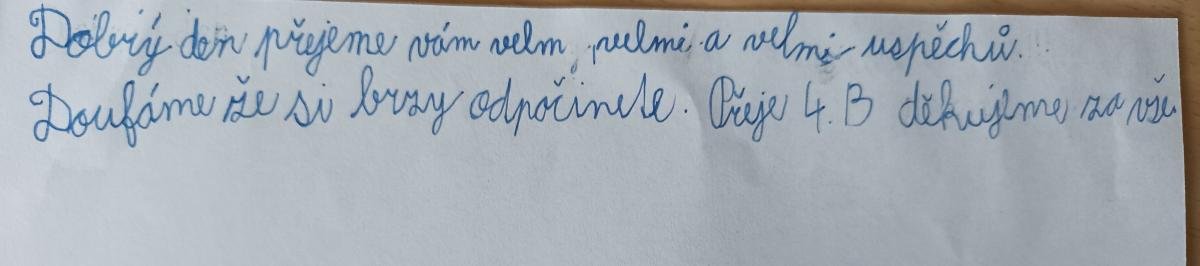 Dobrý den přejeme vám velm, velmi a velmi uspěchů.
Doufáme že si brzy odpočinete. Přeje 4. B děkujeme za vše